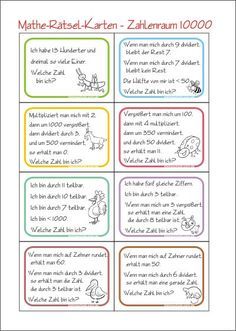 Mathe-Rätsel-Karten - Zahlenraum 10000
Ich habe 13 Hunderter und
dreimal so viele Einer.
Welche Zahl
bin ich?
Wenn man mich durch 9 dividiert
bleibt der Rest 7.
Wenn man mich durch 7 dividiert
bleibt kein Rest.
Die Hälfte von mir ist < 50
Welche Zahl bin ich?
Multipliziert man mich mit 2,
dann um 1000 vergrößert,
dann dividiert durch 3,
und um 500 vermindert,
so erhält man 0.
Welche Zahl bin ich?
Vergrößert man mich um 100,
dann mit 4 multipliziert,
dann um 350 vermindert
und durch 50 dividiert
so erhält man 11.
Welche Zahl bin ich?
Ich bin durch 11 teilbar.
Ich bin durch 10 teilbar.
Ich bin durch 7 teilbar.
Ich bin < 1000.
Welche Zahl bin ich?
Ich habe fünf gleiche Ziffern.
Ich bin durch 3 teilbar.
Wenn man mich um 3 vergrößert
so erhält man eine Zahl,
die durch 8 teilbar ist.
Welche Zahl bin ich?
Wenn man mich auf Zehner rundet
erhält man 60.
Wenn man mich durch 3 dividiert,
so erhält man die gerade Zahl.
Welche Zahl bin ich?
Wenn man mich auf Zehner rundet
erhält man 50.
Wenn man mich durch 6 dividiert
so erhält man eine gerade Zahl.
Welche Zahl bin ich?